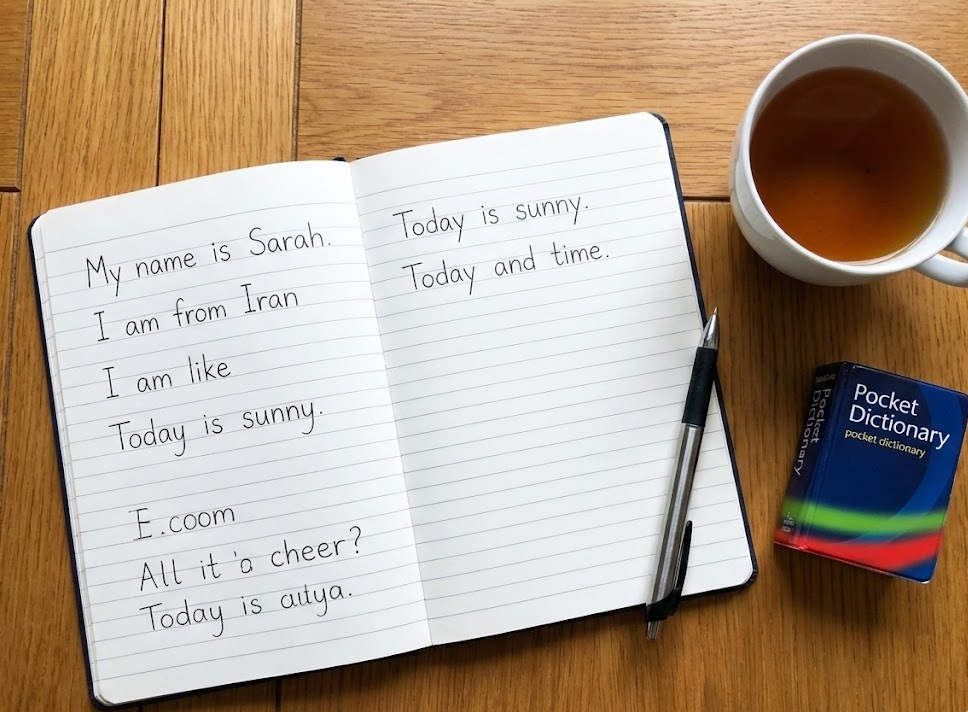 My name is Sarah.
I am from Iran
I am like
Today is sunny.
E.coom
All it a cheer?
Today is
Today is sunny.
Today and time.
Pocket
Dictionary
pocket dictionary
Pocket
Dictionary